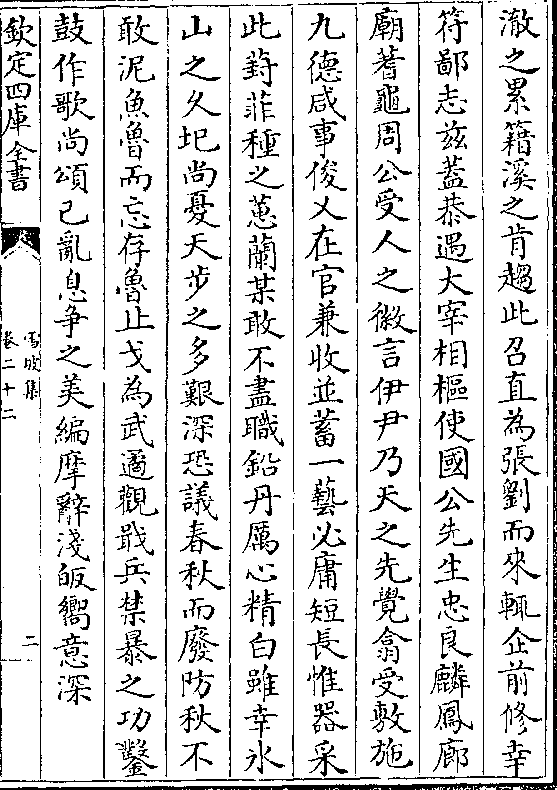 澈之累籍溪之肯趨此召直為張劉而來輒企前修幸
符鄙志兹蓋恭遇大宰相樞使國公先生忠良麟鳳廊
廟蓍龜周公受人之徽言伊尹乃天之先覺翕受敷施
九德咸事俊乂在官兼收並蓄一藝必庸短長惟器采
此葑菲種之蕙蘭某敢不盡職鉛丹厲心精白雖幸氷
山之久圮尚憂天步之多艱深恐議春秋而廢防秋不
敢泥魚魯而忘存魯止戈為武適觀戢兵禁暴之功鑿
鼓作歌尚頌已亂息争之美編摩辭淺皈嚮意深
欽定四庫全書
雪坡集
卷二十二
二